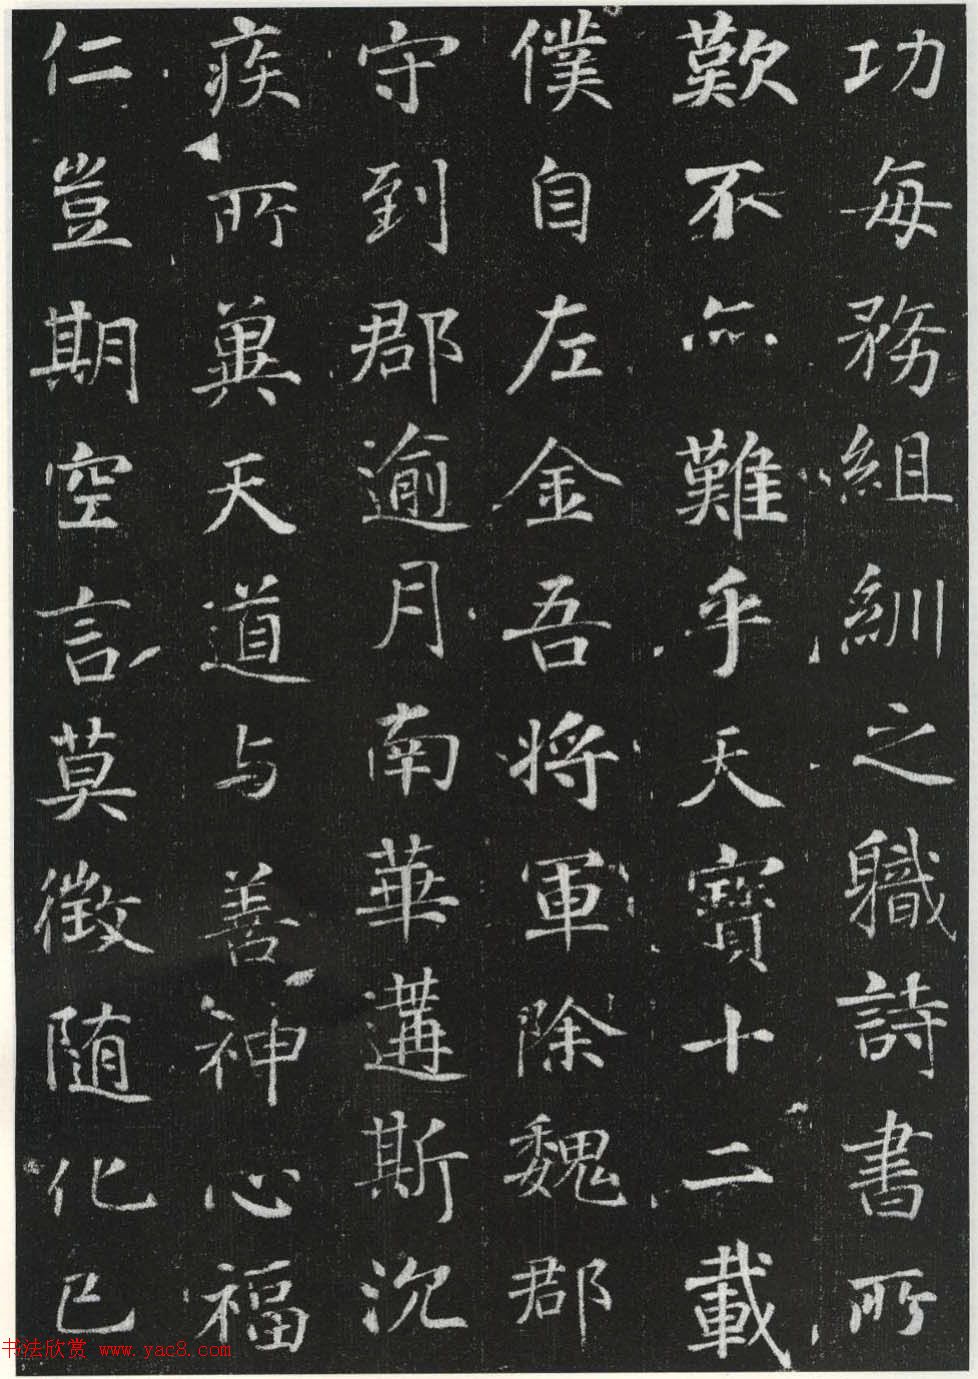 功每務組紃之職詩書所
歎不亦難乎天寶十二載
僕自左金吾將軍除魏郡
守到郡逾月南華遘斯沉
疾所冀天道与善神心福
仁豈期空言莫徵随化已
书法欣赏 www.yac8.com